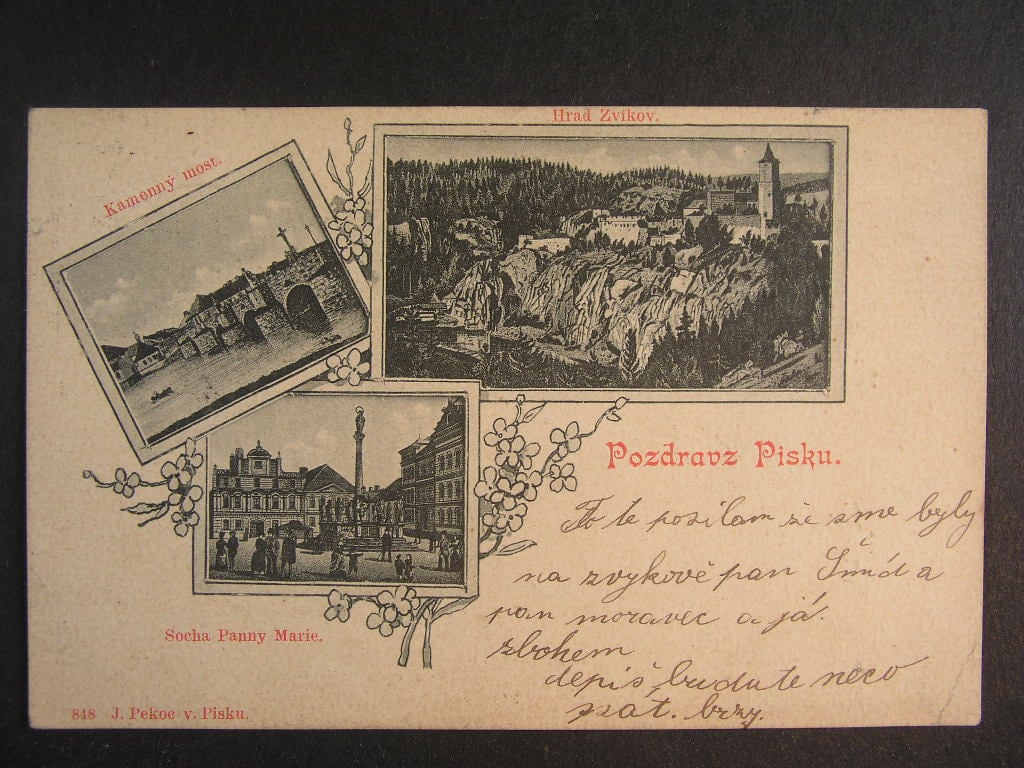 Hrad Zvíkov.
Kamenný most.
Pozdrav z Pisku.
To te posilam že sme byly
na zvykově pan Šmíd a
pan moravec a já.
zbohem
depiš budute neco
psát. brzy.
Socha Panny Marie.
848 J. Pekoc v. Pisku.